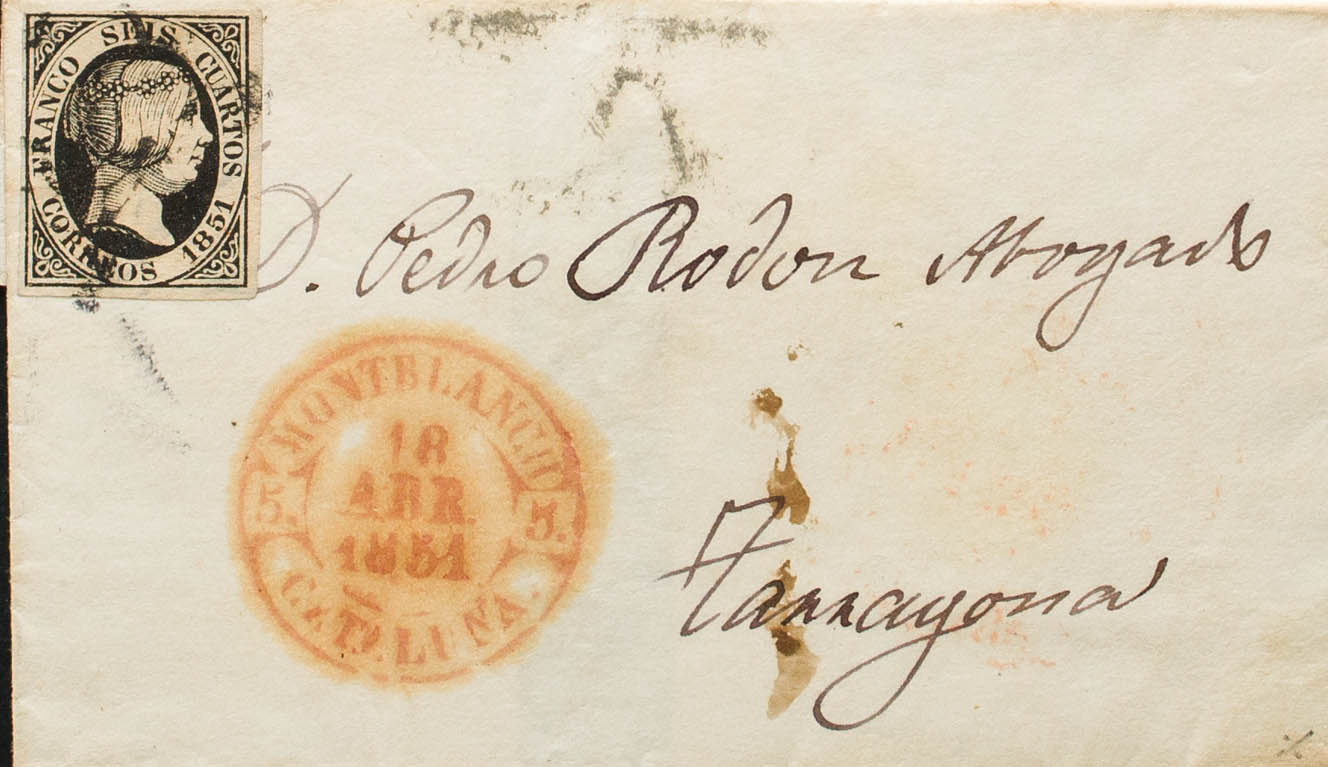 FRANCO SEIS CUARTOS
CORREOS 1851
D. Pedro Rodon Abogado
MONTBLANCH
18
ABR.
1851
5. 5.
CATALUÑA.
Tarragona